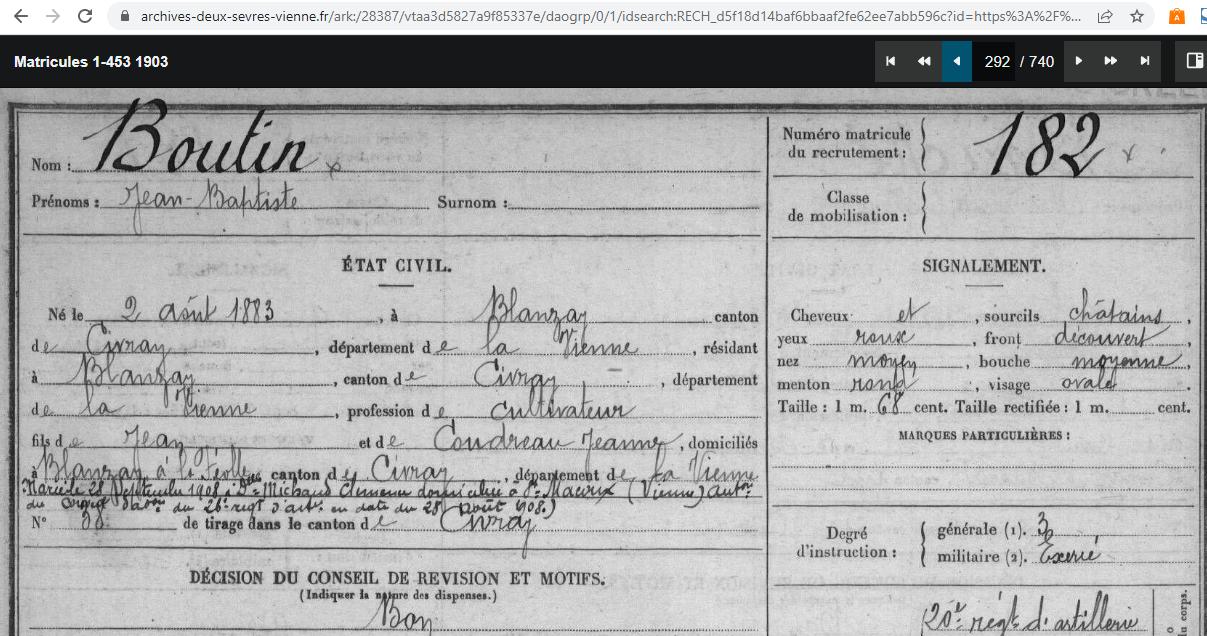 archives-deux-sevres-vienne.fr/ark:/28387/vtaa3d5827a9f85337e/daogrp/0/1/idsearch:RECH_d5f18d14baf6bbaaf2fe62ee7abb596c?id=https%3A%2F%...
Matricules 1-453 1903
292 / 740
Nom : Boutin
Prénoms : Jean-Baptiste Surnom :
ÉTAT CIVIL.
Né le 2 août 1883, à Blanzay canton
de Civray, département de la Vienne, résidant
à Blanzay, canton de Civray, département
de la Vienne, profession de cultivateur
fils de Jean et de Coudreau Jeanne, domiciliés
à Blanzay à canton de Civray, département de la Vienne
Marié le 28 Septembre 1908 à Dlle Michaud domiciliée à St Macoux (Vienne) auton
du du 26e régt d'arte en date du 28 août 1908.)
N° 38 de tirage dans le canton de Civray
DÉCISION DU CONSEIL DE REVISION ET MOTIFS.
(Indiquer la nature des dispenses.)
Bon
Numéro matricule
du recrutement : 182
Classe
de mobilisation :
SIGNALEMENT.
Cheveux et, sourcils châtains,
yeux roux, front découvert
nez moyen, bouche moyenne
menton rond, visage ovale.
Taille : 1 m. 68 cent. Taille rectifiée : 1 m. cent.
MARQUES PARTICULIÈRES :
Degré
d'instruction :
générale (1). 3
militaire (2). Exercé
20e régt d'artillerie